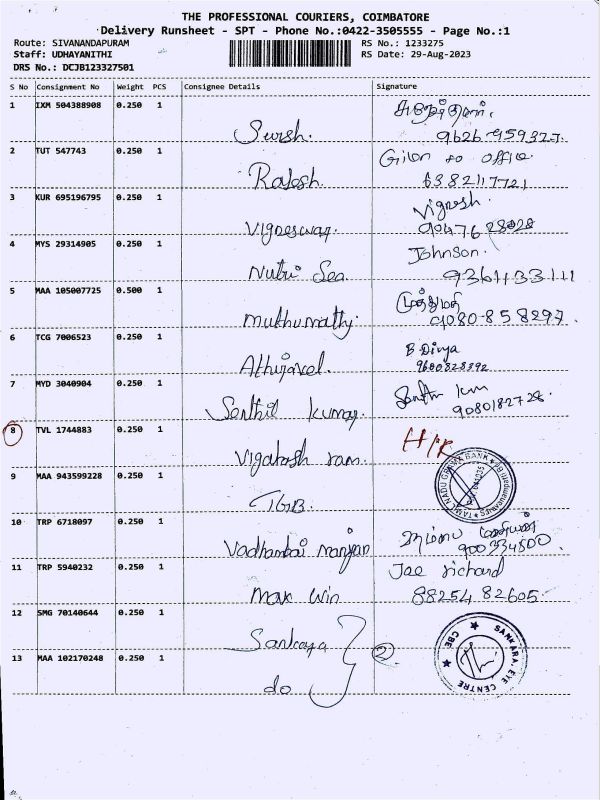 THE PROFESSIONAL COURIERS, COIMBATORE
Delivery Runsheet - SPT - Phone No.:0422-3505555 - Page No.:1
Route: SIVANANDAPURAM
Staff: UDHAYANITHI
DRS No.: DCJB123327501
RS No.: 1233275
RS Date: 29-Aug-2023
S No Consignment No Weight PCS Consignee Details Signature
1 IXM 504388908 0.250 1
Suresh. 9626-959327.
2 TUT 547743 0.250 1
Given to office.
Rajesh. 6382117721
3 KUR 695196795 0.250 1
Vignesh.
Vigneswar. 90476 28028
4 MYS 29314905 0.250 1
Johnson.
Nutri Sea. 9361133111
5 MAA 105007725 0.500 1
முத்துமதி
muthumathy. 9080-858297.
6 TCG 7006523 0.250 1
B. Divya
9600828392
7 MYD 3040904 0.250 1
Senthil kumar. 9080182728.
8 TVL 1744883 0.250 1
ram.
9 MAA 943599228 0.250 1
TAMIL NADU GRAMA BANK
TGB.
10 TRP 6718097 0.250 1
900334500.
11 TRP 5940232 0.250 1
Jae richard
Max win 88254 82605.
12 SMG 70140644 0.250 1
Sankara
2
SANKARA EYE CENTRE
CBE
13 MAA 102170248 0.250 1
do